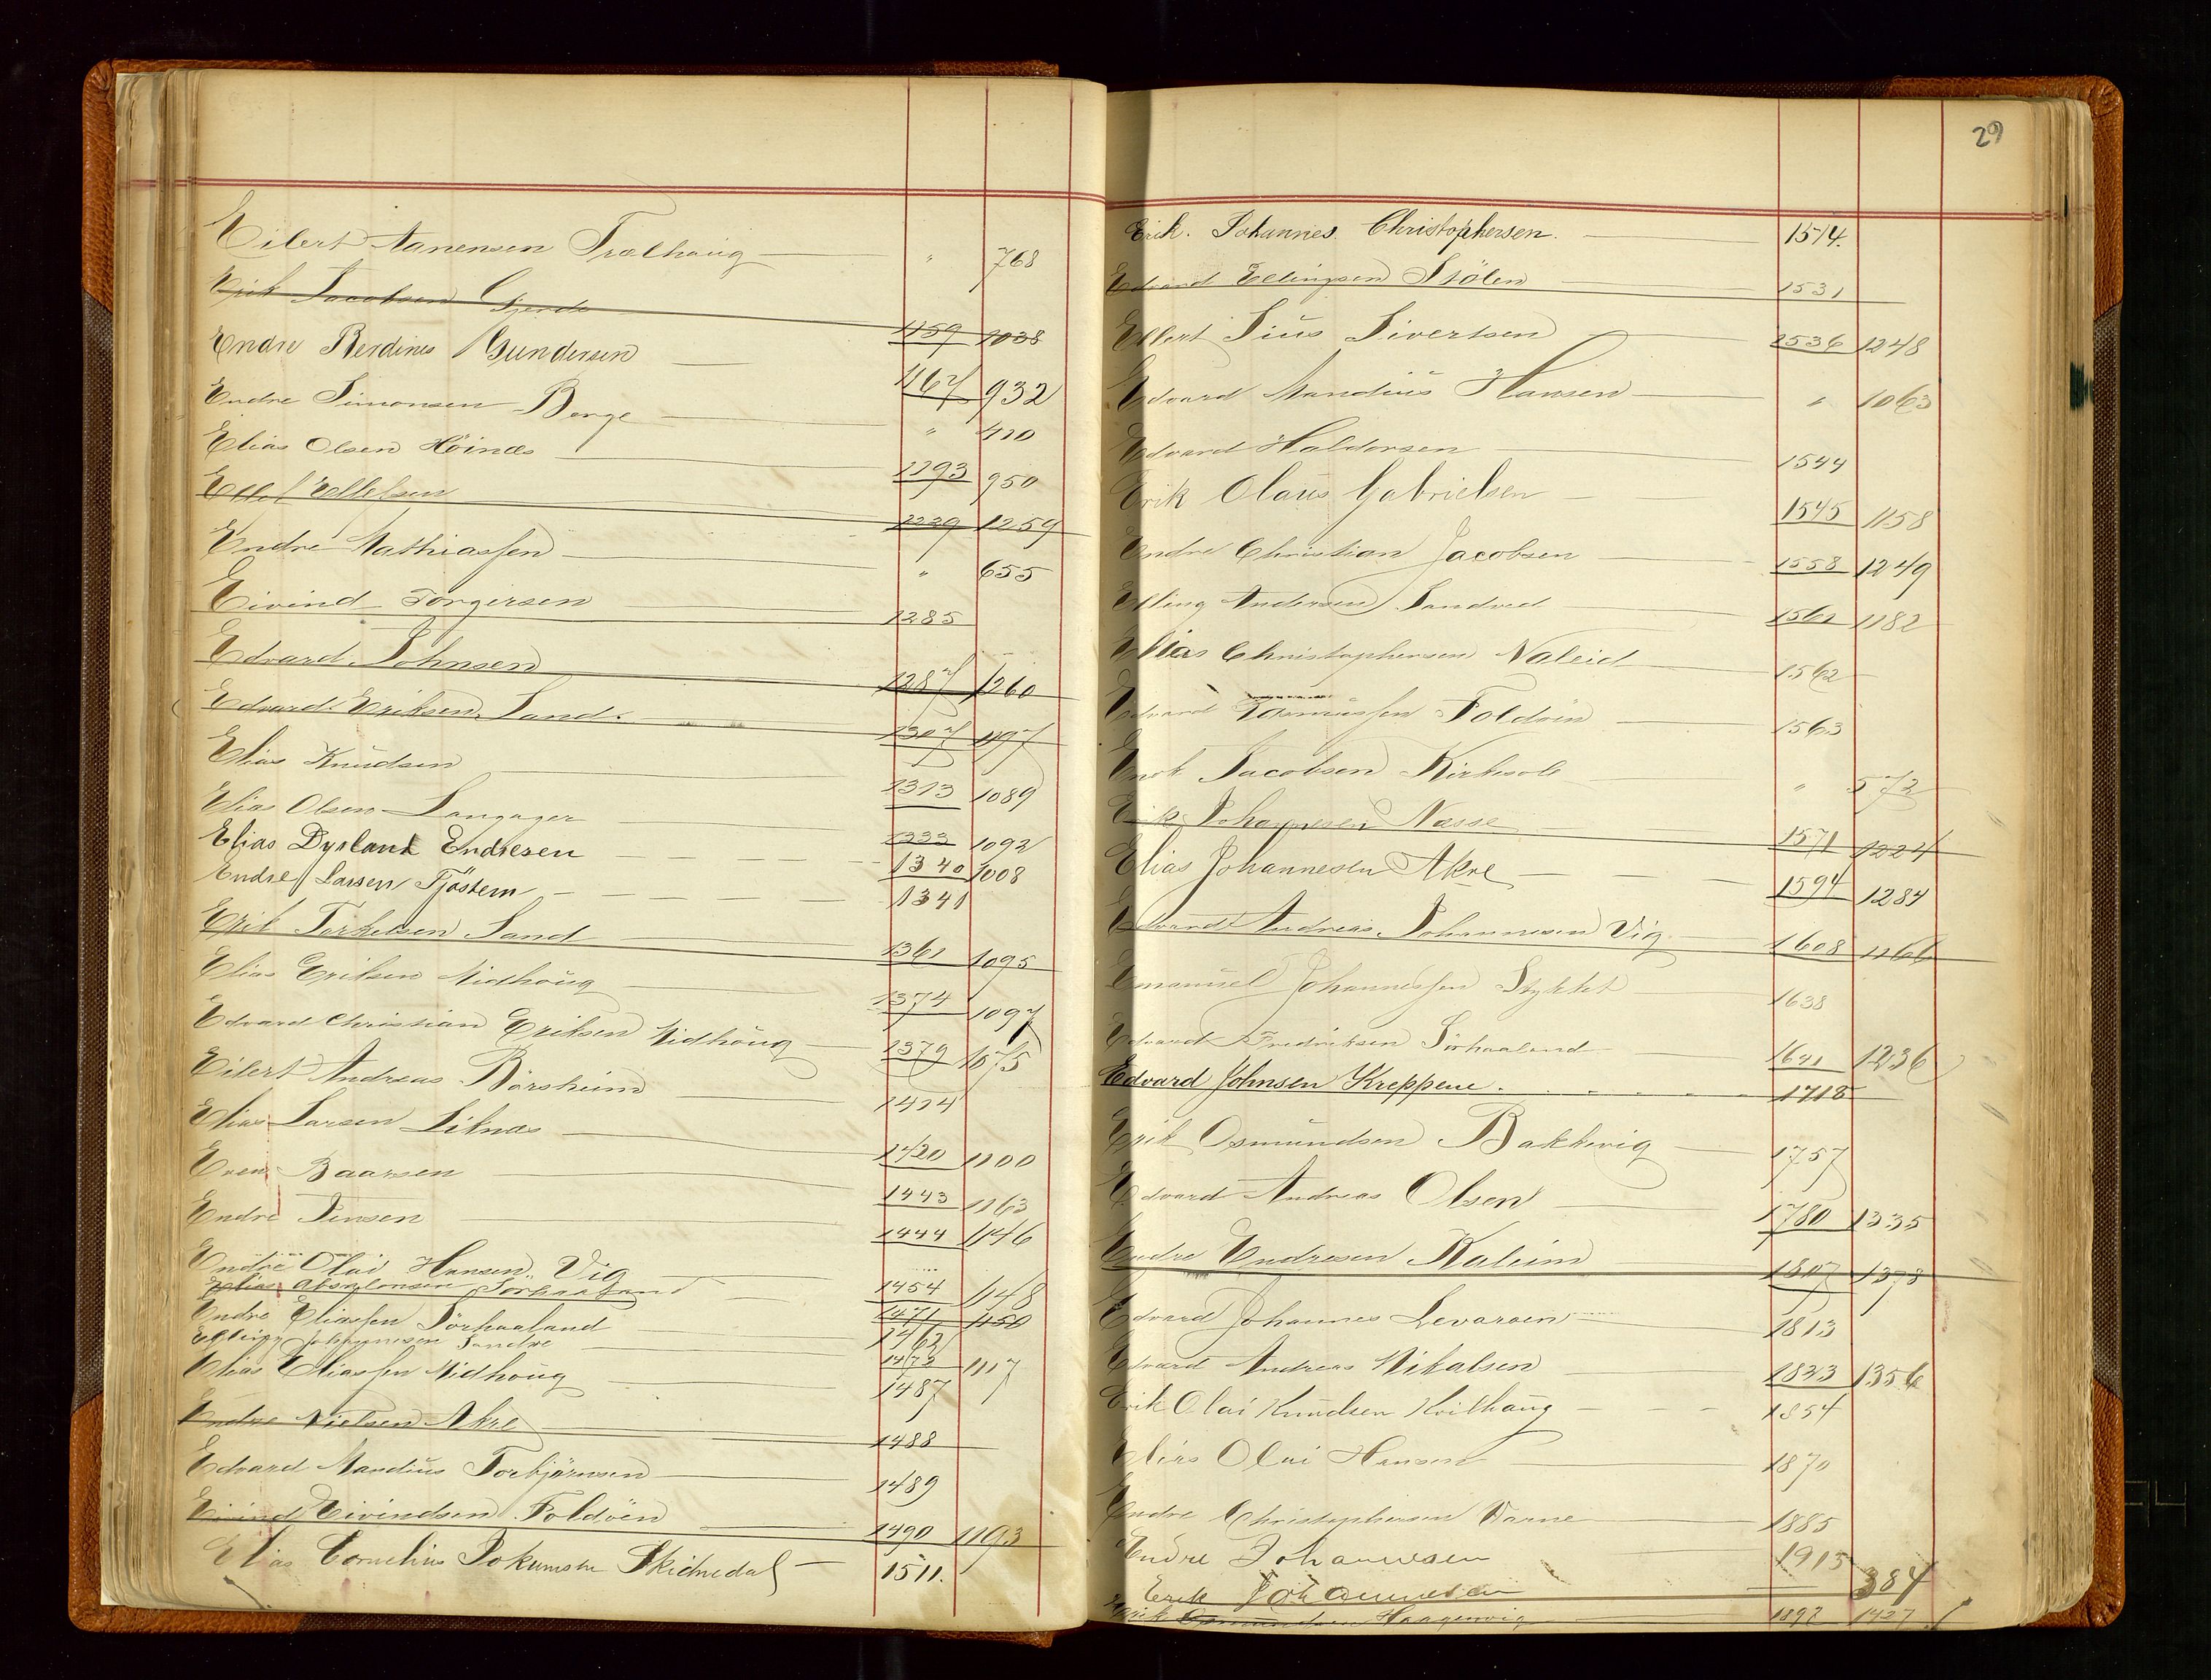 Eilert Aanensen Trælhoug — " 768
Erik Jacobsen Gjerde 1159 1038
Endre Berdines Gundersen — 1167 932
Endre Simonsen Berge — " 410
Elias Olsen Høinæs — 1193 950
Ellef Ellefsen 1229 1259
Endre Mathiassen — " 655
Eivind Torgersen 1285
Edvard Johnsen 1287 1260
Edvard Eriksen Sand. 1307 1197
Elias Knudsen — 1313 1089
Elias Olsen Langager — 1333 1092
Elias Dysland Endresen — — — 1340 1008
Endre Larsen Tjøstem — — — 1341
Erik Torkelsen Sand 1361 1095
Elias Eriksen Midhoug — 1374 1097
Edvard Christian Eriksen Midhoug — 1379 1075
Eilert Andreas Børsheim — 1414
Elias Larsen Liknæs — 1420 1100
Even Baarsen — 1443 1163
Endre Jensen — 1444 1146
Endre Olai Hansen Vig — 1454 1148
Elias Absalonsen Sørhaaland — 1471 1150
Endre Eliassen Sørhaaland — 1462
Elling Johannesen Søndre — 1472 1117
Elias Eliassen Midhoug — 1487
Endre Nielsen Akre 1488
Edvard Mandius Torbjørnsen — 1489
Eivind Eivindsen Foldøen — 1490 1193
Elias Cornelius Skidnedal — 1511.
29
Erik. Johannes Christophersen. — 1514.
Edvard Ellingsen Stølen — 1531
Eilert Sius Sivertsen — 1536 1248
Edvard Mandius Hansen — " 1063
Edvard Haldorsen — 1544
Erik Olaus Gabrielsen — — 1545 1158
Endre Christian Jacobsen — 1558 1249
Elling Andersen Sandved — 1561 1182
Elias Christophersen Naleid — 1562
Edvard Rasmussen Foldøen — 1563
Enok Jacobsen Kirkesole — " 572
Erik Johannesen Næsse 1571 1224
Elias Johannesen Akre — — — 1594 1284
Edvard Andreas Johannesen Vig 1608 1166
Emanuel Johannessen Stykket — 1638
Edvard Fredriksen Sørhaaland — 1641 1236
Edvard Johnsen Kreppene. . . . . 1718
Erik Osmundsen Bakkevig — 1757
Edvard Andreas Olsen — 1780 1335
Endre Endresen Kaleim 1807 1378
Edvard Johannes Levarsen — 1813
Edvard Andreas Mikalsen — 1833 1356
Erik Olai Knudsen Kvilhaug — — — 1854
Elias Olai Hansen — 1870
Endre Christophersen Varne — 1885
Endre Johannesen 1915
Erik Johannesen — 384
Erik Osmundsen Haagenvig 1892 1427